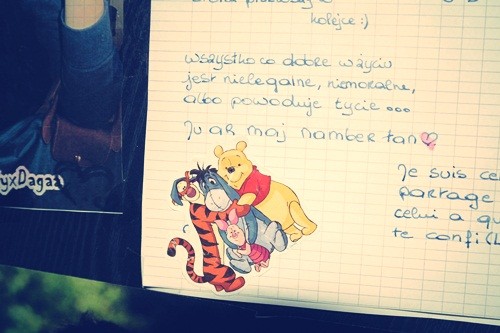 kolejce:)
wszystko co dobre w życiu
jest nielegalne, niemoralne,
albo powoduje tycie...
Ju ar maj namber łan
Je suis
partage
celui a q
te confi
yxDagaz